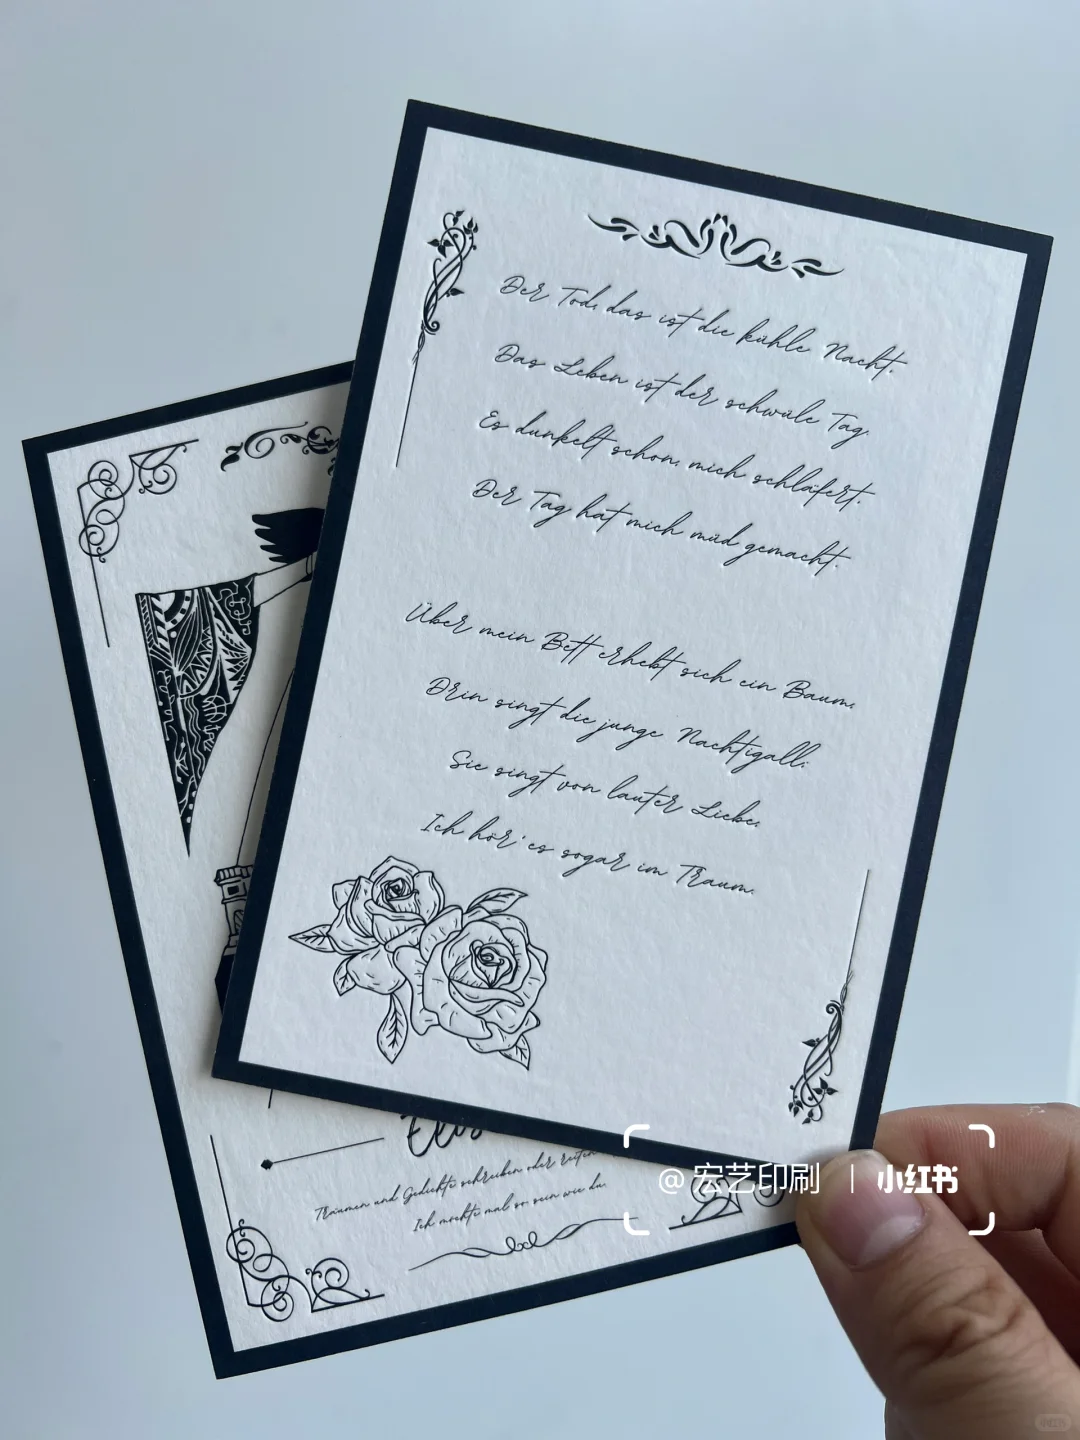 Der Tod, das ist die kühle Nacht.
Das Leben ist der schwüle Tag.
Es dunkelt schon, mich schläfert.
Der Tag hat mich müd gemacht.
Über mein Bett erhebt sich ein Baum.
Drin singt die junge Nachtigall;
Sie singt von lauter Liebe.
Ich hör' es sogar im Traum.
Träumen und Gedichte schreiben oder reiten
Ich möchte mal so sein wie du.
@宏艺印刷 | 小红书
小红书